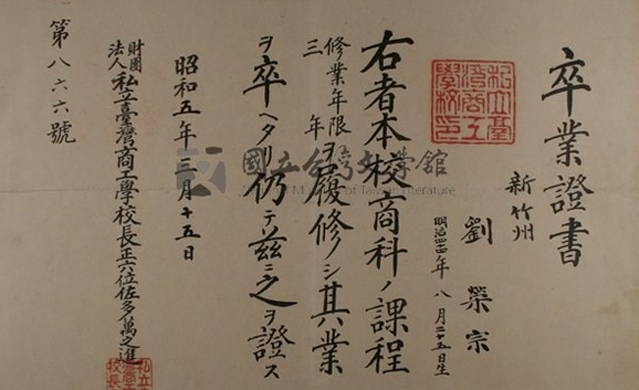 卒業證書
新竹州
劉榮宗
明治四十四年八月二十五日生
右者本校商科ノ課程
修業年限三年ヲ履修シ其業
ヲ卒ヘタリ仍テ茲ニ之ヲ證ス
昭和五年三月十五日
財團法人私立臺灣商工學校長正六位佐多萬之進
第八六六號
私立臺灣商工學校印
國立台灣文學館
National Museum of Taiwan Literature